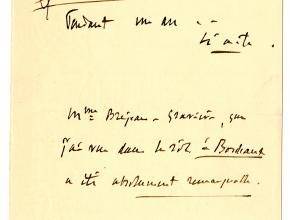 Pendant un an . .
Mme Bréjean-Gravière, que
j'ai vue dans le rôle à Bordeaux
a été absolument remarquable.